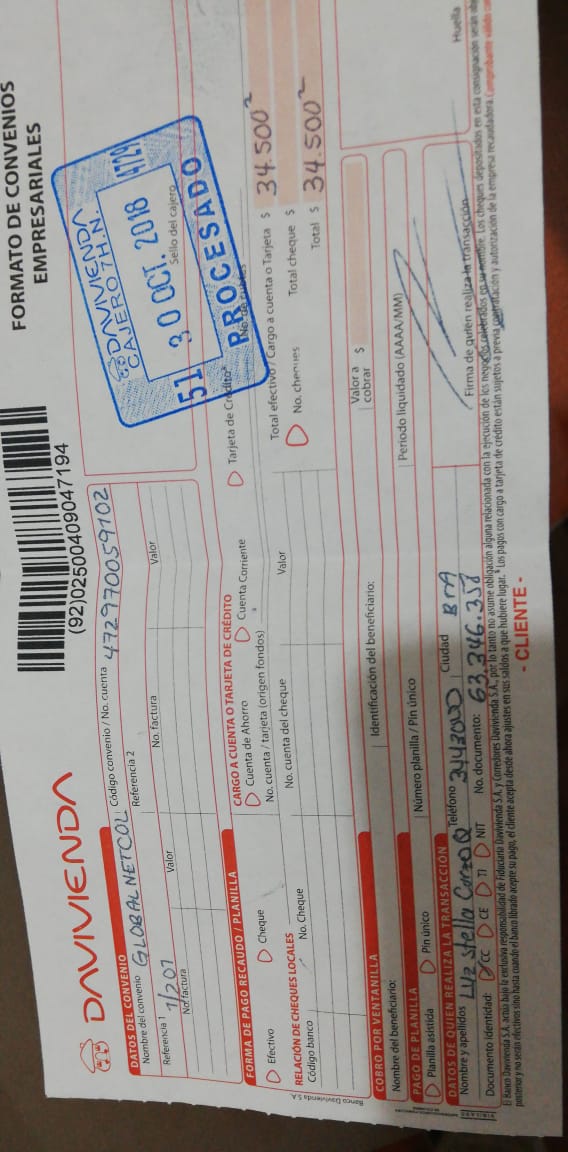 DAVIVIENDA
FORMATO DE CONVENIOS
EMPRESARIALES
(92)02500409047194
DATOS DEL CONVENIO
Nombre del convenio GLOBALNETCOL Código convenio / No. cuenta 4729970059102
Referencia 1 1/201 Referencia 2
No. factura Valor No. factura Valor
DAVIVIENDA
CAJERO 7 H.N.
4729
51 30 OCT. 2018
Sello del cajero
PROCESADO
FORMA DE PAGO RECAUDO / PLANILLA
Efectivo Cheque
CARGO A CUENTA O TARJETA DE CRÉDITO
Cuenta de Ahorro Cuenta Corriente Tarjeta de Crédito*
No. cuenta / tarjeta (origen fondos) No. de cuotas
RELACIÓN DE CHEQUES LOCALES
Código banco No. Cheque No. cuenta del cheque Valor
Total efectivo / Cargo a cuenta o Tarjeta $ 34.500
No. cheques Total cheque $
Total $ 34.500
COBRO POR VENTANILLA
Nombre del beneficiario: Identificación del beneficiario: Valor a cobrar $
PAGO DE PLANILLA
Planilla asistida Pin único Número planilla / Pin único Periodo liquidado (AAAA/MM)
DATOS DE QUIEN REALIZA LA TRANSACCIÓN
Nombre y apellidos Luz Stella Corzo Q Teléfono 3143000 Ciudad BTA
Documento identidad: CC CE TI NIT No. documento: 63.346.358
Firma de quien realiza la transacción Huella
El Banco Davivienda S.A. actúa bajo la exclusiva responsabilidad de Fiduciaria Davivienda S.A. y Corredores Davivienda S.A., por lo tanto no asume obligación alguna relacionada con la ejecución de los negocios celebrados en su nombre. Los cheques depositados en esta consignación serán
posterior y no serán efectivos sino hasta cuando el banco librado acepte su pago, el cliente acepta desde ahora ajustes en sus saldos a que hubiere lugar. * Los pagos con cargo a tarjeta de crédito están sujetos a previa contratación y autorización de la empresa recaudadora. Comprobante válido
- CLIENTE -
Banco Davivienda S.A.